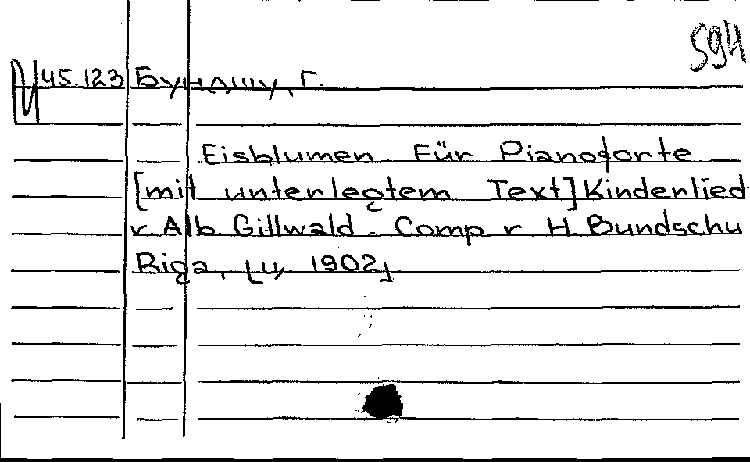 594
И 45.123 Бундшу, Г.
Eisblumen Für Pianoforte
[mit unterlegtem Text] Kinderlied
v Alb Gillwald. Comp v H Bundschu
Riga, [ц, 1902]